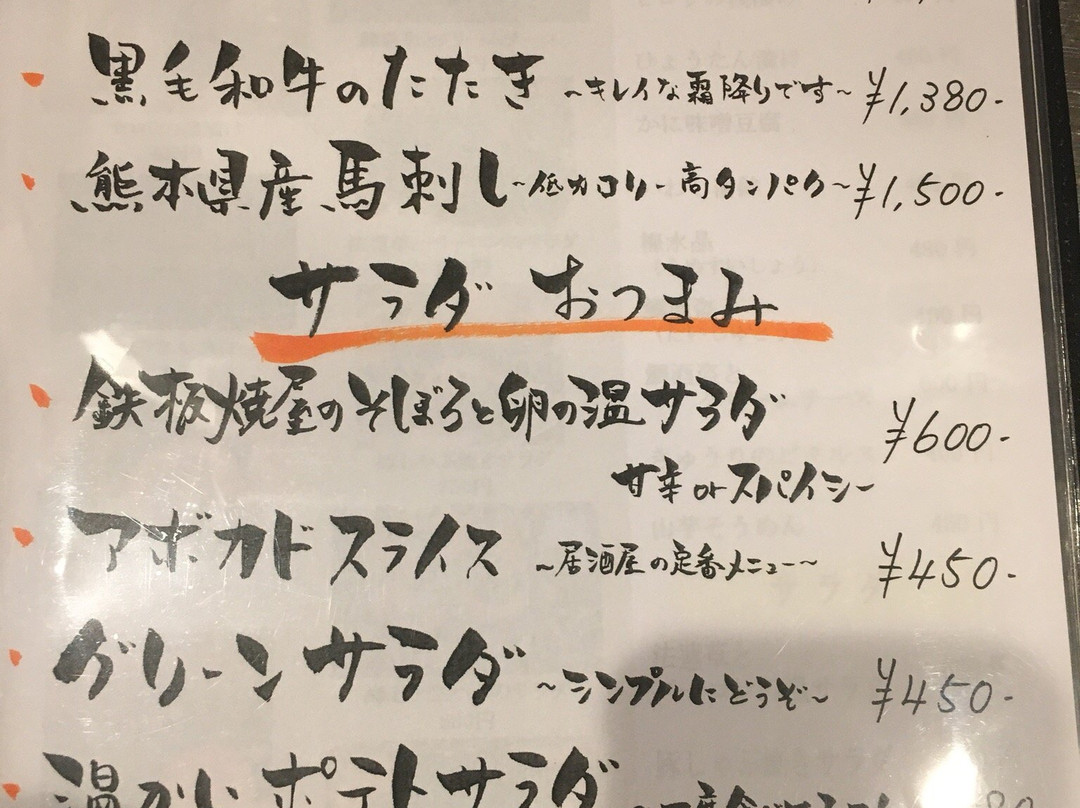 黒毛和牛のたたき ~キレイな霜降りです~ ¥1,380-
熊本県産馬刺し~低カロリー高タンパク~¥1,500-
サラダ おつまみ
鉄板焼屋のそぼろと卵の温サラダ ¥600-
甘辛orスパイシー
アボカドスライス ~居酒屋の定番メニュー~ ¥450-
グリーンサラダ ~シンプルにどうぞ~ ¥450-
温かいポテトサラダ